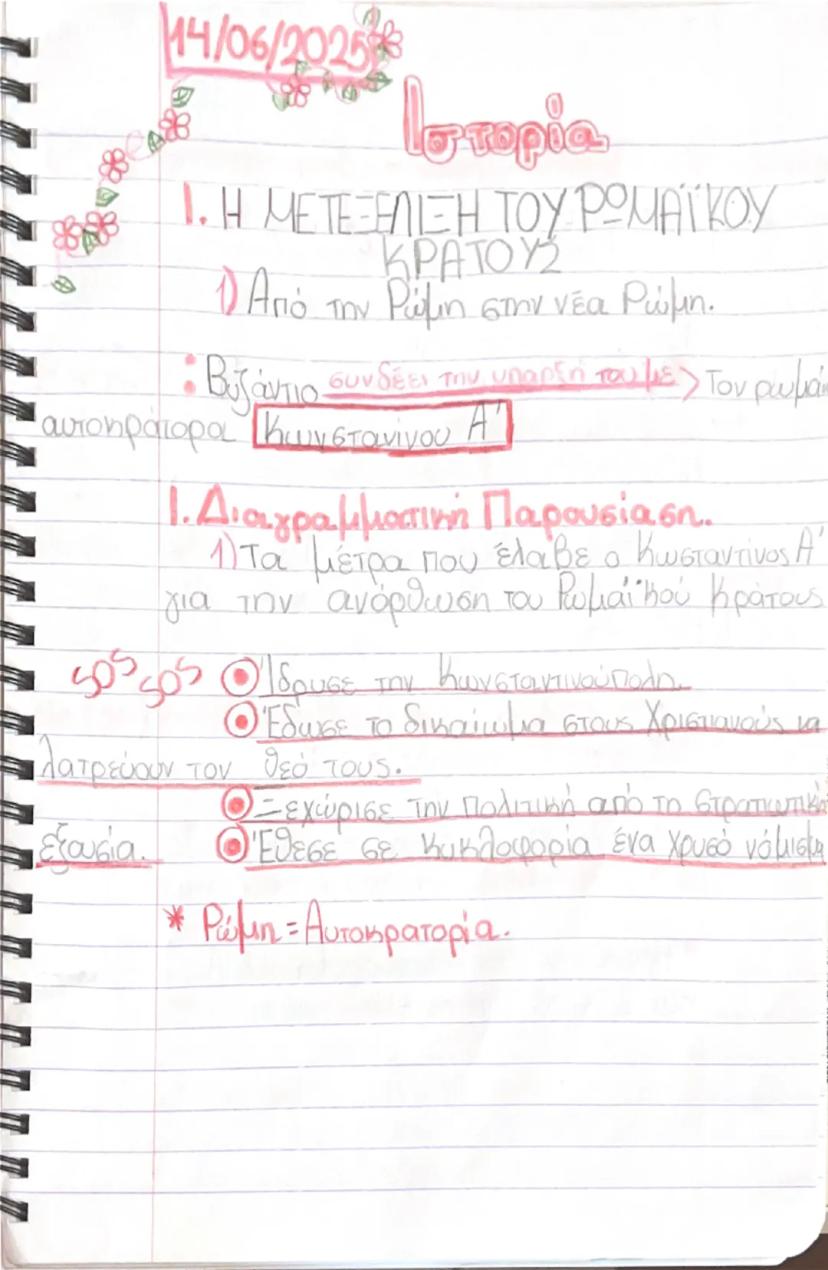 14/06/2025
Ιστορία
1. Η ΜΕΤΕΞΕΛΙΞΗ ΤΟΥ ΡΩΜΑΪΚΟΥ
ΚΡΑΤΟΥΣ
1) Από την Ρώμη στην νέα Ρώμη.
: Βυζάντιο συνδέει την υπαρξή του με > Τον ρωμαί
αυτοκράτορα Κωνσταννίνου Α'
1. Διαγραμματική Παρουσίαση.
1) Τα μέτρα που έλαβε ο Κωσταντίνος Α'
για την ανόρθωση του Ρωμαϊκού Κράτους
SOS SOS Ίδρυσε την Κωνσταντινούπολη.
Έδωσε το δικαίωμα στους Χριστιανούς να
λατρεύουν τον θεό τους.
Ξεχώρισε την πολιτική από τη στρατιωτική
εξουσία. Έθεσε σε κυκλοφορία ένα χρυσό νόμισμα
* Ρώμη = Αυτοκρατορία.